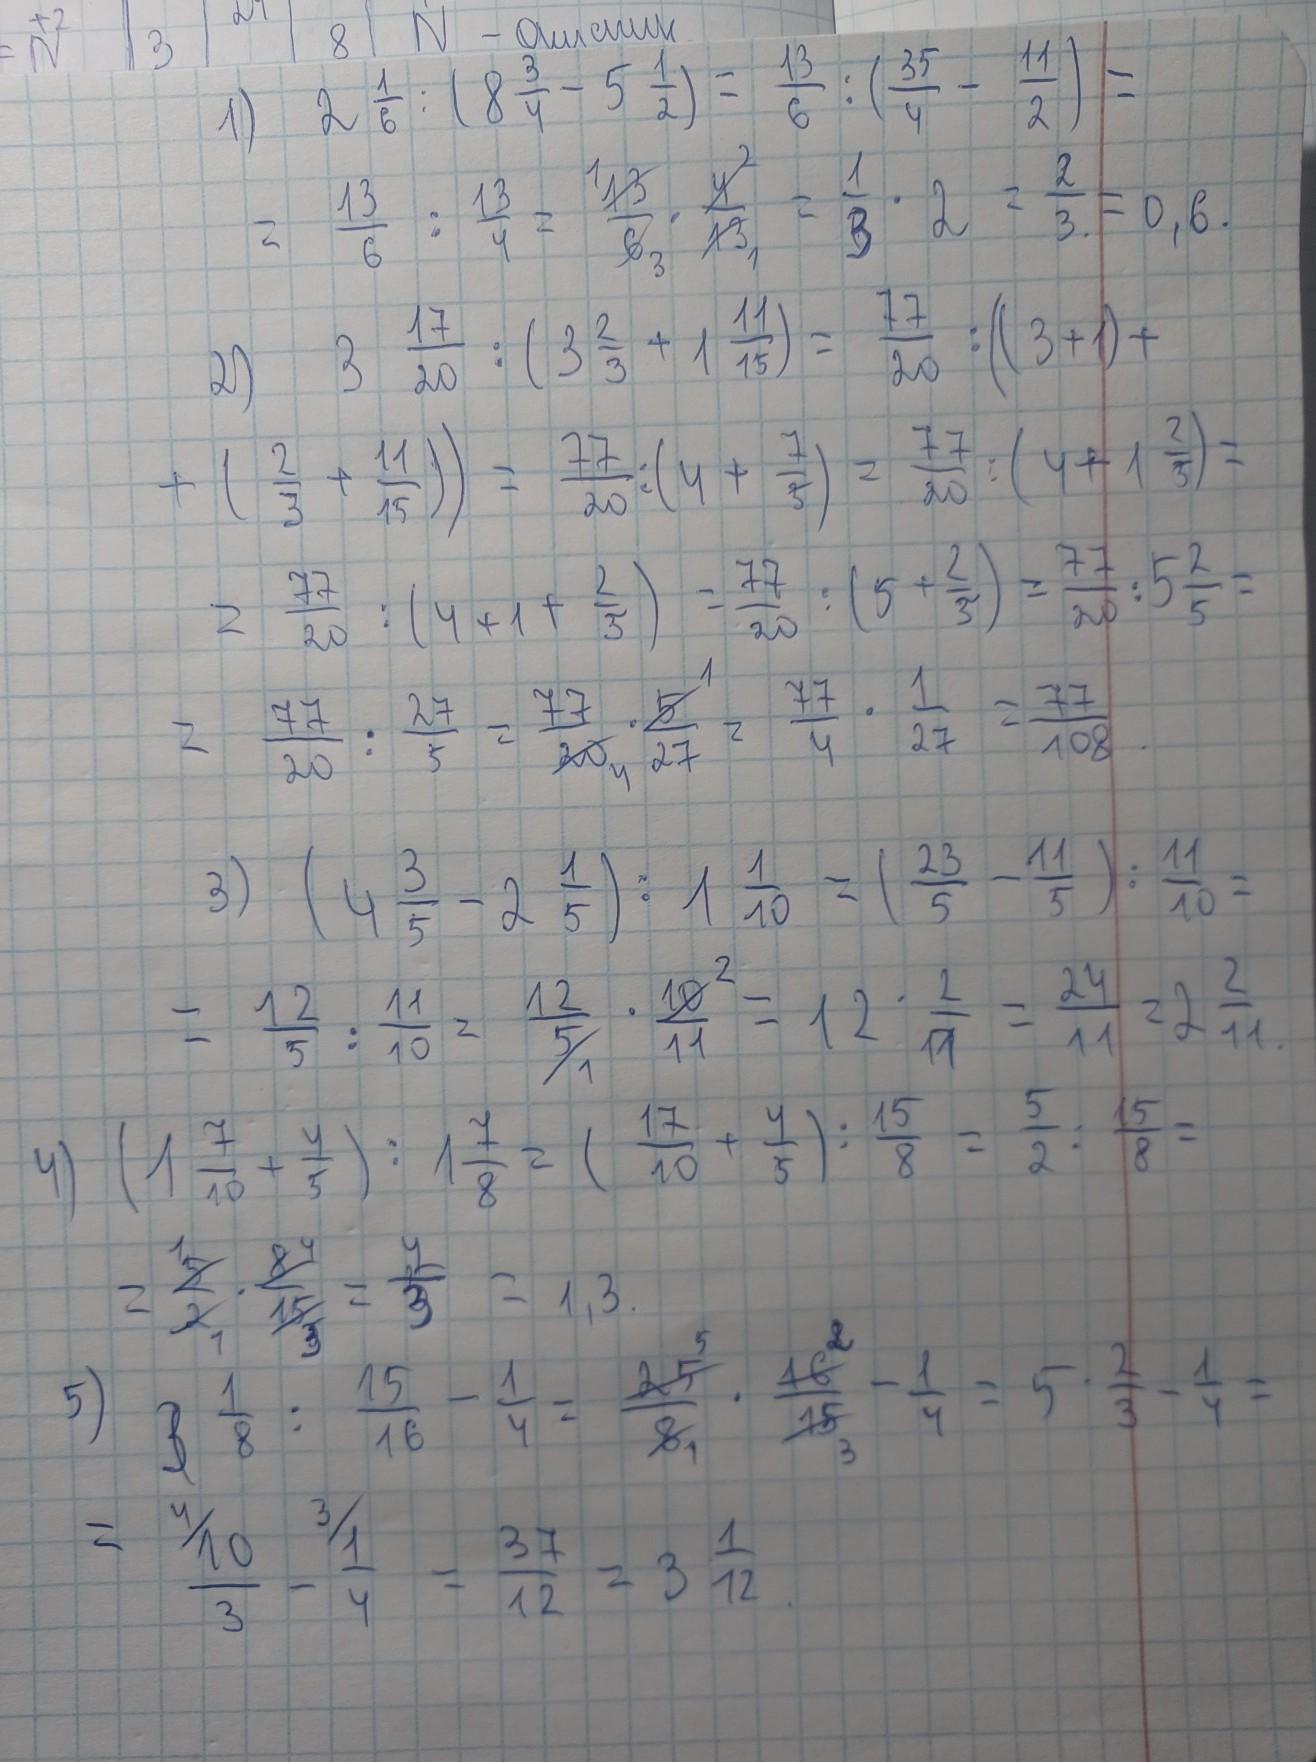 +2 24
= N | 3 | | 8 | N - 
1) 2 1/6 : (8 3/4 - 5 1/2) = 13/6 : (35/4 - 11/2) =
= 13/6 : 13/4 = 13/6 · 4/13 = 1/3 · 2 = 2/3 = 0,6.
2) 3 17/20 : (3 2/3 + 1 11/15) = 77/20 : ((3+1) +
+ (2/3 + 11/15)) = 77/20 : (4 + 7/5) = 77/20 : (4 + 1 2/5) =
= 77/20 : (4+1+ 2/5) = 77/20 : (5 + 2/5) = 77/20 : 5 2/5 =
= 77/20 : 27/5 = 77/20 · 5/27 = 77/4 · 1/27 = 77/108.
3) (4 3/5 - 2 1/5) : 1 1/10 = (23/5 - 11/5) : 11/10 =
= 12/5 : 11/10 = 12/5 · 10/11 = 12 · 2/11 = 24/11 = 2 2/11.
4) (1 7/10 + 4/5) : 1 7/8 = (17/10 + 4/5) : 15/8 = 5/2 : 15/8 =
= 5/2 · 8/15 = 4/3 = 1,3.
5) 3 1/8 : 15/16 - 1/4 = 25/8 · 16/15 - 1/4 = 5 · 2/3 - 1/4 =
= 10/3 - 1/4 = 37/12 = 3 1/12.